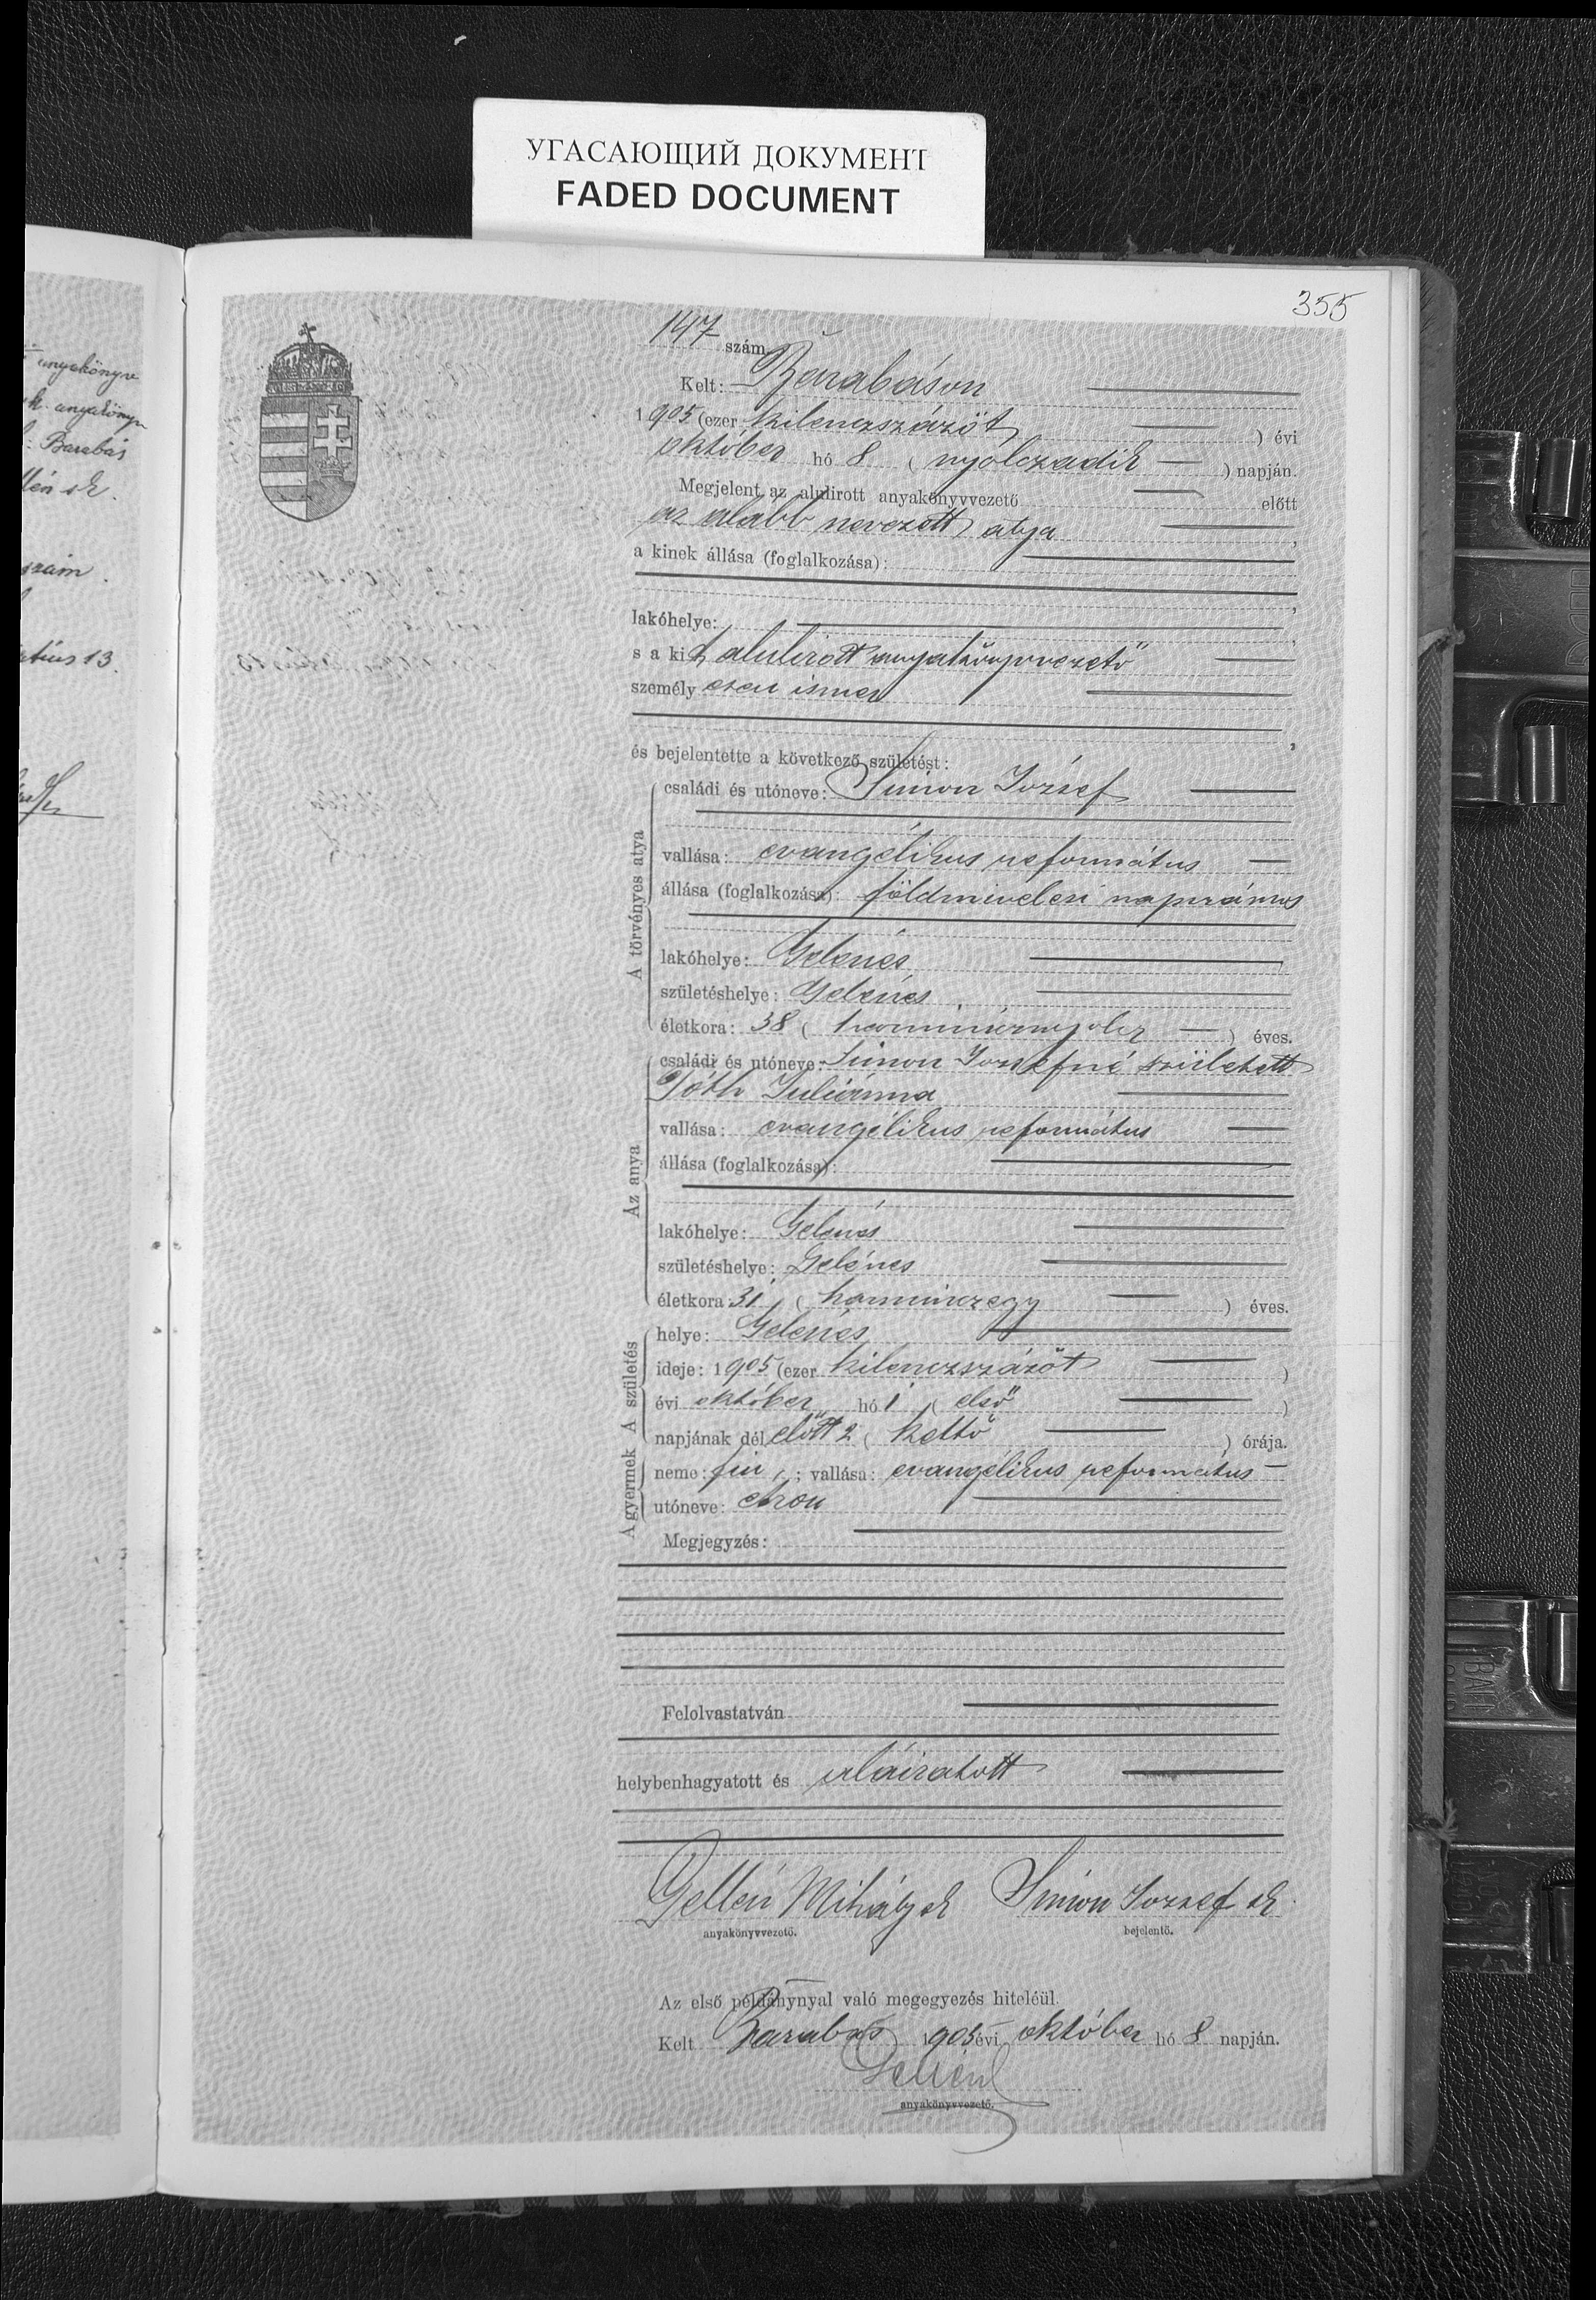 УГАСАЮЩИЙ ДОКУМЕНТ
FADED DOCUMENT
355
anyakönyv
k. anyakönyv
Barabás
szám.
13.
147 szám.
Kelt: Barabáson
1905 (ezer kilenczszázöt) évi
október hó 8 (nyolczadik) napján.
Megjelent az alulirott anyakönyvvezető előtt
az alább nevezett atya,
a kinek állása (foglalkozása):
lakóhelye:
s a kit alulirott anyakönyvvezető
személyesen ismer
és bejelentette a következő születést:
A törvényes atya
családi és utóneve: Simon József
vallása: evangélikus református
állása (foglalkozása): földmivelesi napszámos
lakóhelye: Gelénes
születéshelye: Gelénes
életkora: 38 (harmincznyolcz) éves.
Az anya
családi és utóneve: Simon Józsefné született
Tóth Juliánna
vallása: evangélikus református
állása (foglalkozása):
lakóhelye: Gelénes
születéshelye: Gelénes
életkora: 31 (harminczegy) éves.
A születés
helye: Gelénes
ideje: 1905 (ezer kilenczszázöt)
évi október hó 1 (első)
napjának dél előtt 2 (kettő) órája.
A gyermek
neme: fiu; vallása: evangélikus református
utóneve: Áron
Megjegyzés:
Felolvastatván
helybenhagyatott és aláiratott
Gellén Mihály sk Simon József sk.
anyakönyvvezető. bejelentő.
Az első példánynyal való megegyezés hiteléül.
Kelt Barabás 1905 évi október hó 8 napján.
Gellén
anyakönyvvezető.